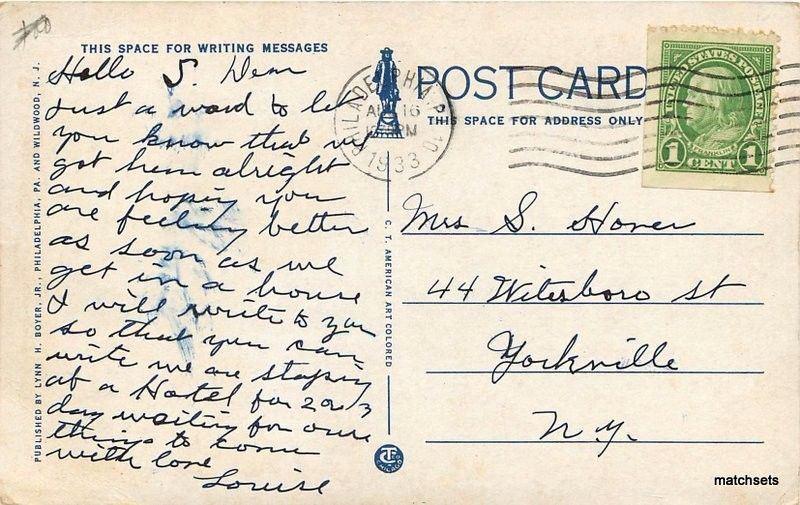 THIS SPACE FOR WRITING MESSAGES
POST CARD
THIS SPACE FOR ADDRESS ONLY
PHILADELPHIA, PA.
16
PM
1933
UNITED STATES POSTAGE
FRANKLIN
1 CENT 1
Hello S. Dear
Just a word to let
you know that we
got hear alright
and hoping you
are feeling better
as soon as we
get in a house
I will write to you
so that you can
write we are staying
at a Hotel for 2 or 3
day waiting for our
things to come
with love
Louise
Mrs S. Hover
44 Witesboro st
Yorkville
N.Y.
PUBLISHED BY LYNN H. BOYER, JR., PHILADELPHIA, PA. AND WILDWOOD, N. J.
C. T. AMERICAN ART COLORED
CHICAGO
matchsets